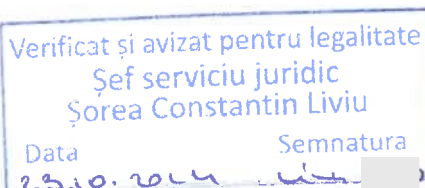 Verificat și avizat pentru legalitate
Șef serviciu juridic
Șorea Constantin Liviu
Data Semnatura